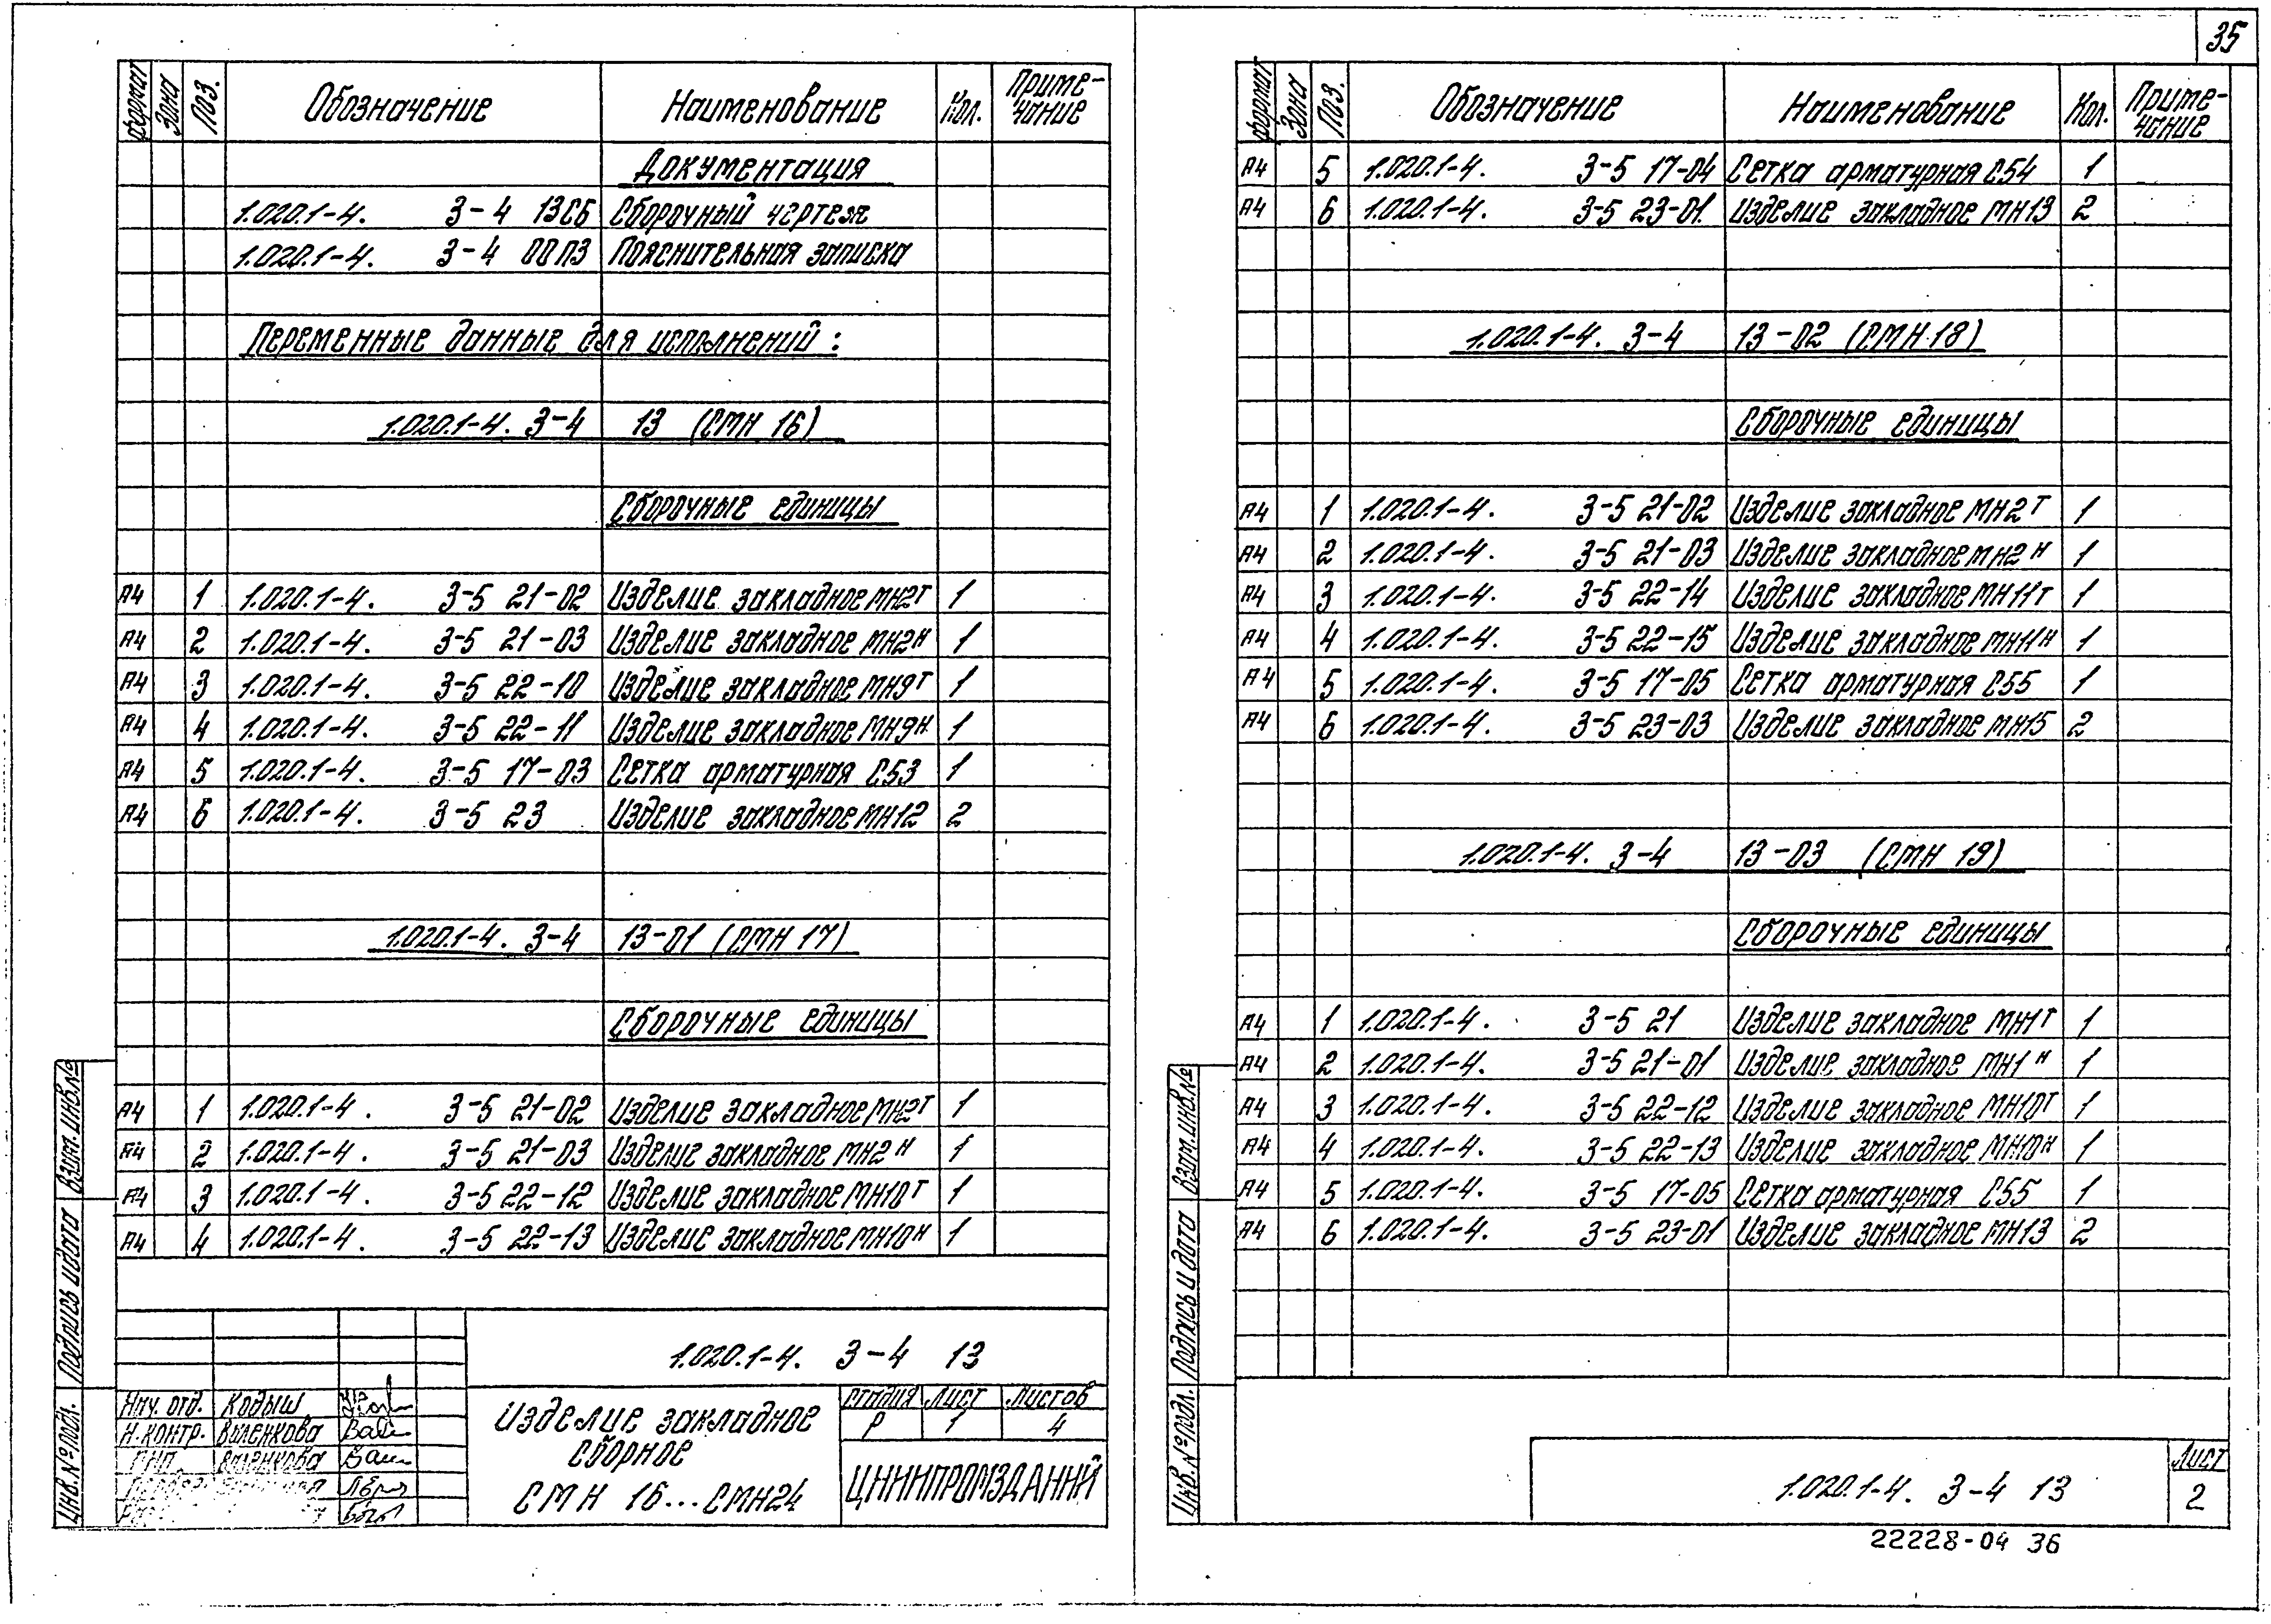 35
формат Зона Поз. Обозначение Наименование Кол. Приме-чание
Документация
1.020.1-4. 3-4 13СБ Сборочный чертеж
1.020.1-4. 3-4 00ПЗ Пояснительная записка
Переменные данные для исполнений:
1.020.1-4. 3-4 13 (СМН 16)
Сборочные единицы
А4 1 1.020.1-4. 3-5 21-02 Изделие закладное МН2т 1
А4 2 1.020.1-4. 3-5 21-03 Изделие закладное МН2н 1
А4 3 1.020.1-4. 3-5 22-10 Изделие закладное МН9т 1
А4 4 1.020.1-4. 3-5 22-11 Изделие закладное МН9н 1
А4 5 1.020.1-4. 3-5 17-03 Сетка арматурная С53 1
А4 6 1.020.1-4. 3-5 23 Изделие закладное МН12 2
1.020.1-4. 3-4 13-01 (СМН 17)
Сборочные единицы
А4 1 1.020.1-4. 3-5 21-02 Изделие закладное МН2т 1
А4 2 1.020.1-4. 3-5 21-03 Изделие закладное МН2н 1
А4 3 1.020.1-4. 3-5 22-12 Изделие закладное МН10т 1
А4 4 1.020.1-4. 3-5 22-13 Изделие закладное МН10н 1
Инв.№подл. Подпись и дата Взам.инв.№
1.020.1-4. 3-4 13
Нач. отд. Кодыш
Н.контр. Виленкова
ГИП Виленкова
Изделие закладное
сборное
СМН 16...СМН24
стадия Лист Листов
Р 1 4
ЦНИИПРОМЗДАНИЙ
формат Зона Поз. Обозначение Наименование Кол. Приме-чание
А4 5 1.020.1-4. 3-5 17-04 Сетка арматурная С54 1
А4 6 1.020.1-4. 3-5 23-01 Изделие закладное МН13 2
1.020.1-4. 3-4 13-02 (СМН 18)
Сборочные единицы
А4 1 1.020.1-4. 3-5 21-02 Изделие закладное МН2т 1
А4 2 1.020.1-4. 3-5 21-03 Изделие закладное МН2н 1
А4 3 1.020.1-4. 3-5 22-14 Изделие закладное МН11т 1
А4 4 1.020.1-4. 3-5 22-15 Изделие закладное МН11н 1
А4 5 1.020.1-4. 3-5 17-05 Сетка арматурная С55 1
А4 6 1.020.1-4. 3-5 23-03 Изделие закладное МН15 2
1.020.1-4. 3-4 13-03 (СМН 19)
Сборочные единицы
А4 1 1.020.1-4. 3-5 21 Изделие закладное МН1т 1
А4 2 1.020.1-4. 3-5 21-01 Изделие закладное МН1н 1
А4 3 1.020.1-4. 3-5 22-12 Изделие закладное МН10т 1
А4 4 1.020.1-4. 3-5 22-13 Изделие закладное МН10н 1
А4 5 1.020.1-4. 3-5 17-05 Сетка арматурная С55 1
А4 6 1.020.1-4. 3-5 23-01 Изделие закладное МН13 2
Инв.№подл. Подпись и дата Взам.инв.№
1.020.1-4. 3-4 13
Лист
2
22228-04 36